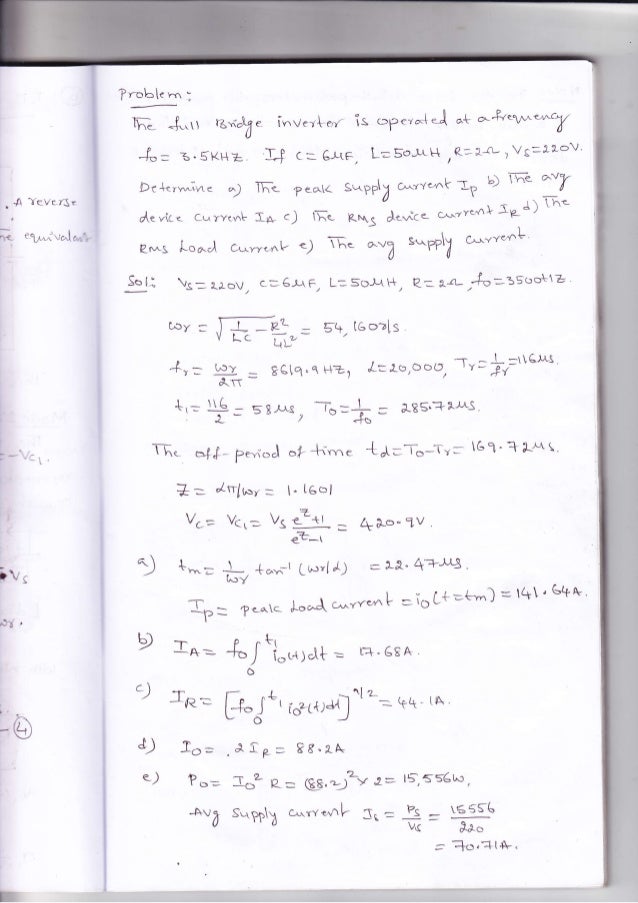 Problem:
The full Bridge inverter is operated at a frequency
fo = 3.5KHZ. If C = 6μF, L = 50μH, R = 2Ω, Vs = 220V.
Determine a) The peak supply current Ip b) The avg
device current IA c) The RMS device current IR d) The
RMS Load current e) The avg supply current.
Sol: Vs = 220V, C = 6μF, L = 50μH, R = 2Ω, fo = 3500HZ.
ωr = √(1/LC − R²/4L²) = 54,160 r/s.
fr = ωr/2π = 8619.9HZ, α = 20,000, Tr = 1/fr = 116μs.
t1 = 116/2 = 58μs, To = 1/fo = 285.72μs.
The off-period of time td = To − Tr = 169.72μs.
Z = απ/ωr = 1.1601
Vc = Vc1 = Vs (e^Z + 1)/(e^Z − 1) = 420.9V.
a) tm = 1/ωr tan⁻¹ (ωr/α) = 22.47μs.
Ip = peak Load current = io(t = tm) = 141.64A.
b) IA = fo ∫₀^t1 io(t)dt = 17.68A.
c) IR = [fo ∫₀^t1 io²(t)dt]^1/2 = 44.1A.
d) Io = .2IR = 88.2A
e) Po = Io² R = (88.2)² × 2 = 15,556W,
Avg Supply current Is = Ps/Vs = 15556/220
= 70.71A.
. A reverse
equivalent
= −Vc1.
Vs
ωr.
④